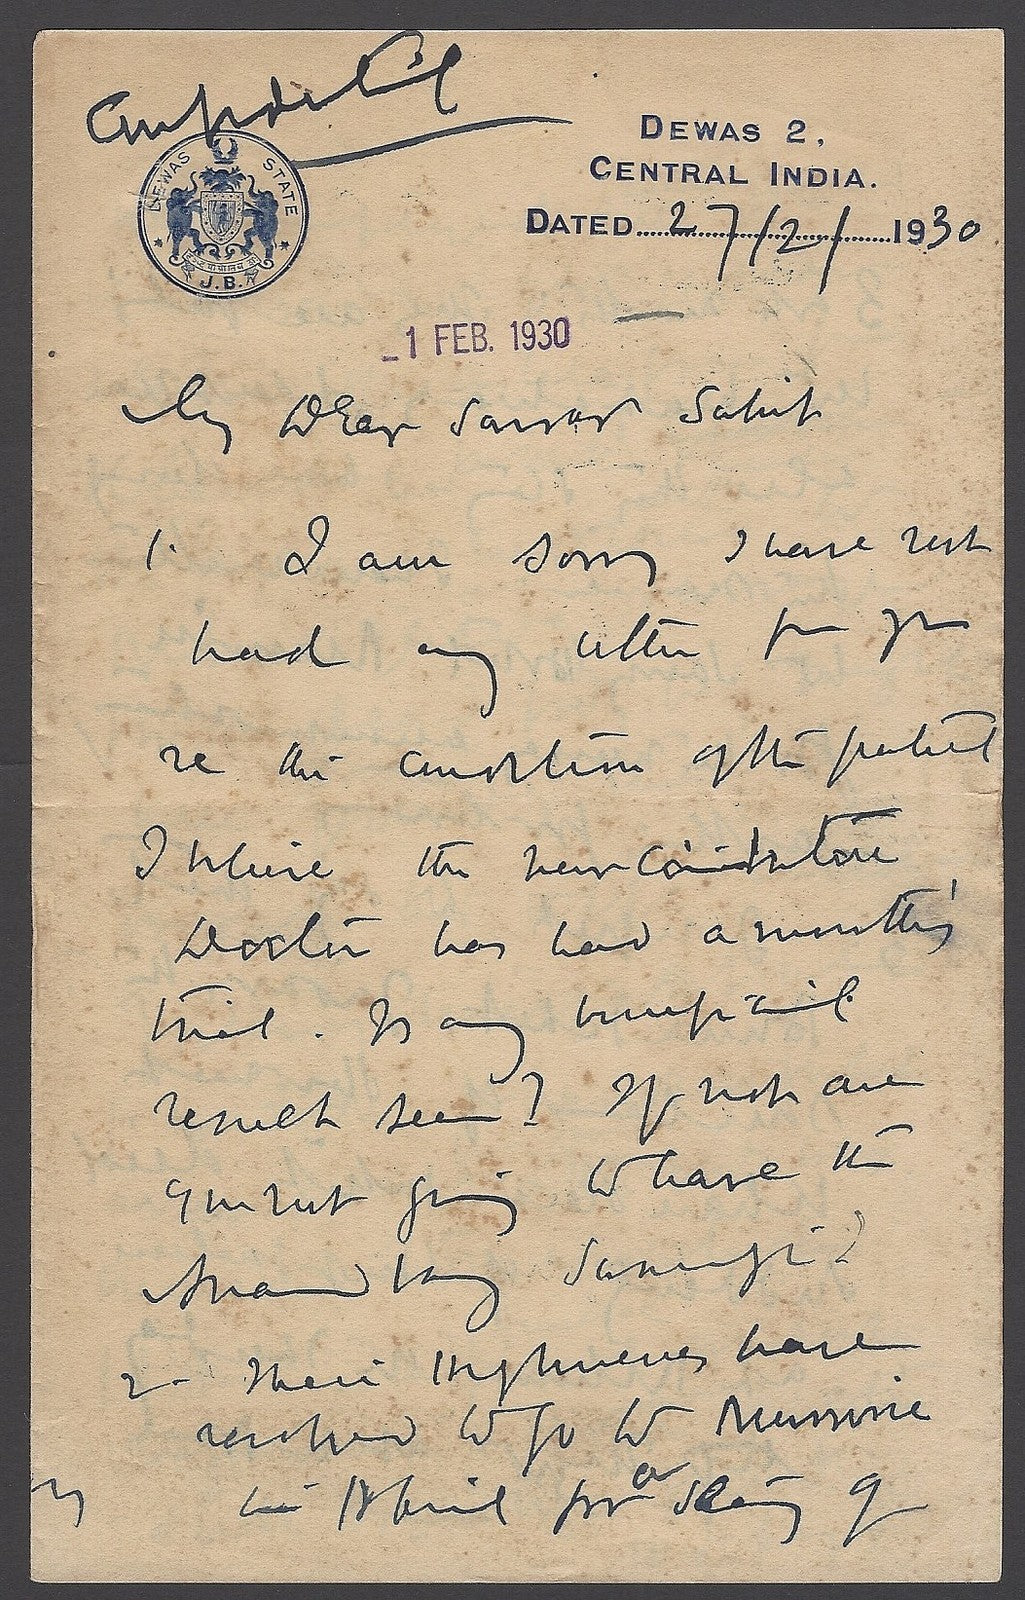 Confidential
DEWAS 2,
CENTRAL INDIA.
DATED 27/2/ 1930
DEWAS STATE
J.B.
1 FEB. 1930
My Dear Sarvar Sahib
1. I am sorry I have not
had any letter from you
re the condition of the patient
I believe the new
Doctor has had a month's
trial. Is any beneficial
result seen? If not are
you not going to have the
2- Their Highnesses have
resolved to go to Mussorie
in April for a stay of